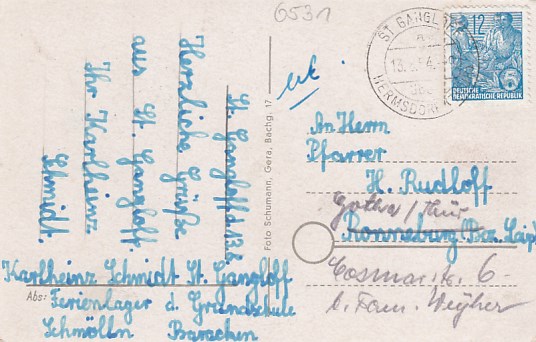 6531
ST. GANGLOFF
HERMSDORF
12
DEUTSCHE
DEMOKRATISCHE REPUBLIK
St. Gangloff d. 13.8.
Herzliche Grüße
aus St. Gangloff
Ihr Karlheinz
Schmidt.
Foto Schumann, Gera, Bachg. 17
An Herrn
Pfarrer
H. Rudloff
Gotha / Thür
Ronneburg (Bez. Leip
Cosmarstr. 6
b. Fam. Weyher
Karlheinz Schmidt St. Gangloff
Abs: Ferienlager d. Grundschule
Schmölln Baracken